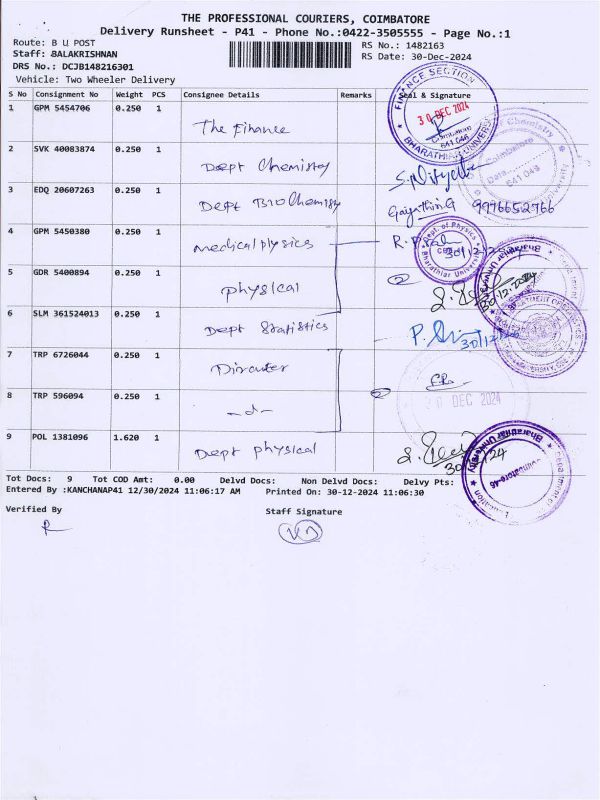 THE PROFESSIONAL COURIERS, COIMBATORE
Delivery Runsheet - P41 - Phone No.:0422-3505555 - Page No.:1
Route: B U POST
RS No.: 1482163
Staff: BALAKRISHNAN
RS Date: 30-Dec-2024
DRS No.: DCJB148216301
Vehicle: Two Wheeler Delivery
S No Consignment No Weight PCS Consignee Details Remarks Seal & Signature
1 GPM 5454706 0.250 1 The Finance
FINANCE SECTION
30 DEC 2024
Coimbatore
641 046
BHARATHIAR UNIVERSITY
2 SVK 40083874 0.250 1 Dept Chemistry
Chemistry
Coimbatore
Date
3 EDQ 20607263 0.250 1 Dept BioChemisty
Gayathri G 9976652766
4 GPM 5450380 0.250 1 medical physics
Dept. of Physics
Bharathiar University
5 GDR 5400894 0.250 1 physical
30.12.2024
Bharathiar University
6 SLM 361524013 0.250 1 Dept Statistics
7 TRP 6726044 0.250 1
30 DEC 2024
8 TRP 596094 0.250 1 -d-
9 POL 1381096 1.620 1 Dept physical
Bharathiar University
Coimbatore-46
Tot Docs: 9 Tot COD Amt: 0.00 Delvd Docs: Non Delvd Docs: Delvy Pts:
Entered By :KANCHANAP41 12/30/2024 11:06:17 AM Printed On: 30-12-2024 11:06:30
Verified By Staff Signature